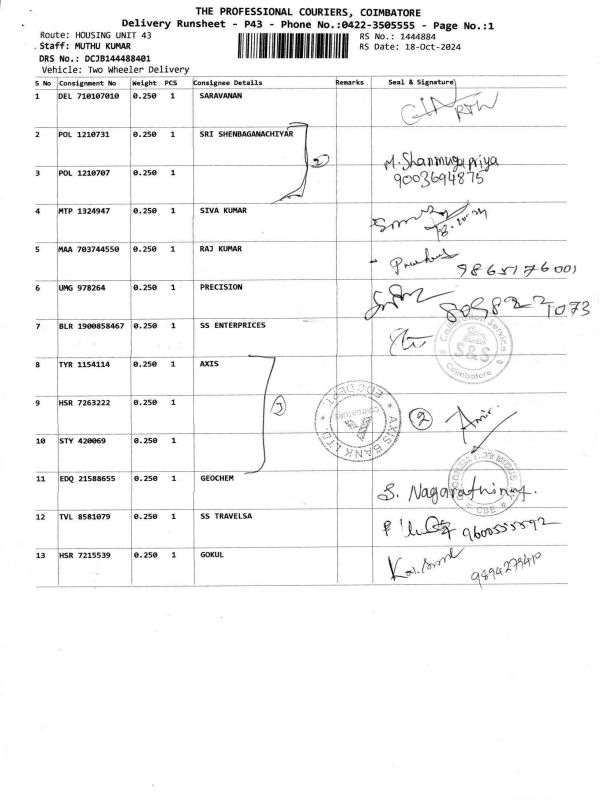 THE PROFESSIONAL COURIERS, COIMBATORE
Delivery Runsheet - P43 - Phone No.:0422-3505555 - Page No.:1
Route: HOUSING UNIT 43 RS No.: 1444884
Staff: MUTHU KUMAR RS Date: 18-Oct-2024
DRS No.: DCJB144488401
Vehicle: Two Wheeler Delivery
S No Consignment No Weight PCS Consignee Details Remarks Seal & Signature
1 DEL 710107010 0.250 1 SARAVANAN
2 POL 1210731 0.250 1 SRI SHENBAGANACHIYAR
3 POL 1210707 0.250 1 M. Shanmugapriya
9003694875
4 MTP 1324947 0.250 1 SIVA KUMAR
5 MAA 703744550 0.250 1 RAJ KUMAR 9865176001
6 UMG 978264 0.250 1 PRECISION
7 BLR 1900858467 0.250 1 SS ENTERPRICES
Calibration Service
S&S
Coimbatore
8 TYR 1154114 0.250 1 AXIS
AXIS BANK LTD.
COIMBATORE
9 HSR 7263222 0.250 1 2 Amir
10 STY 420069 0.250 1
11 EDQ 21588655 0.250 1 GEOCHEM S. Nagarathinam
CBE
12 TVL 8581079 0.250 1 SS TRAVELSA 9600555592
13 HSR 7215539 0.250 1 GOKUL